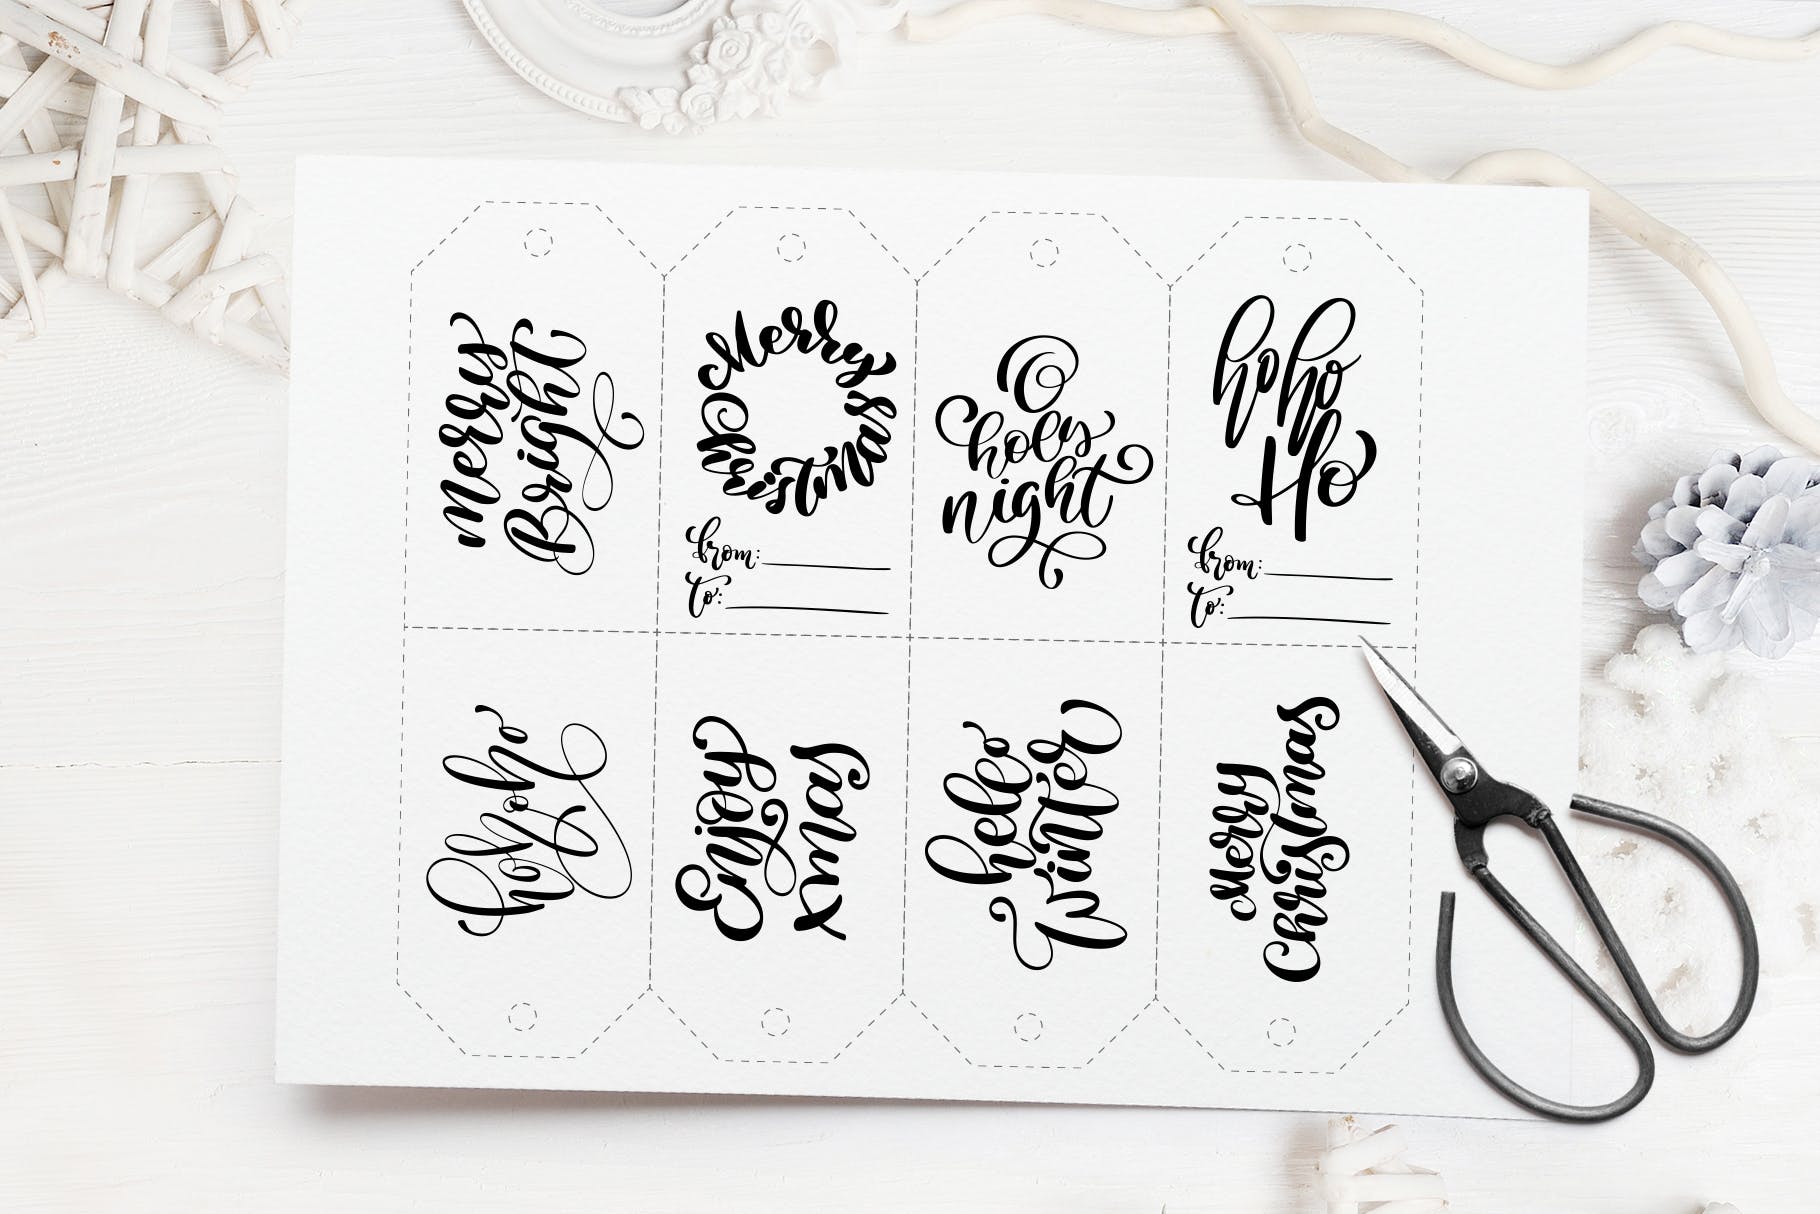 Merry
Bright
Merry Christmas
from:
to:
O
holy
night
ho ho
Ho
from:
to:
ho ho ho
Enjoy
xmas
hello
Winter
Merry
Christmas